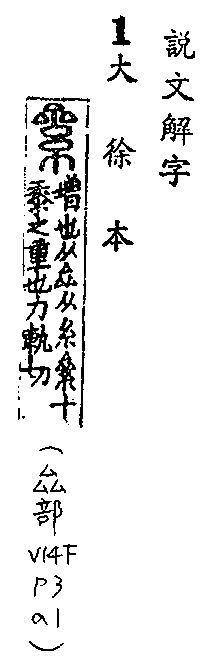 説文解字
1大徐本
絫 增也从厽从糸絫十
黍之重也力軌切
(厽部 V14F P3 a1)